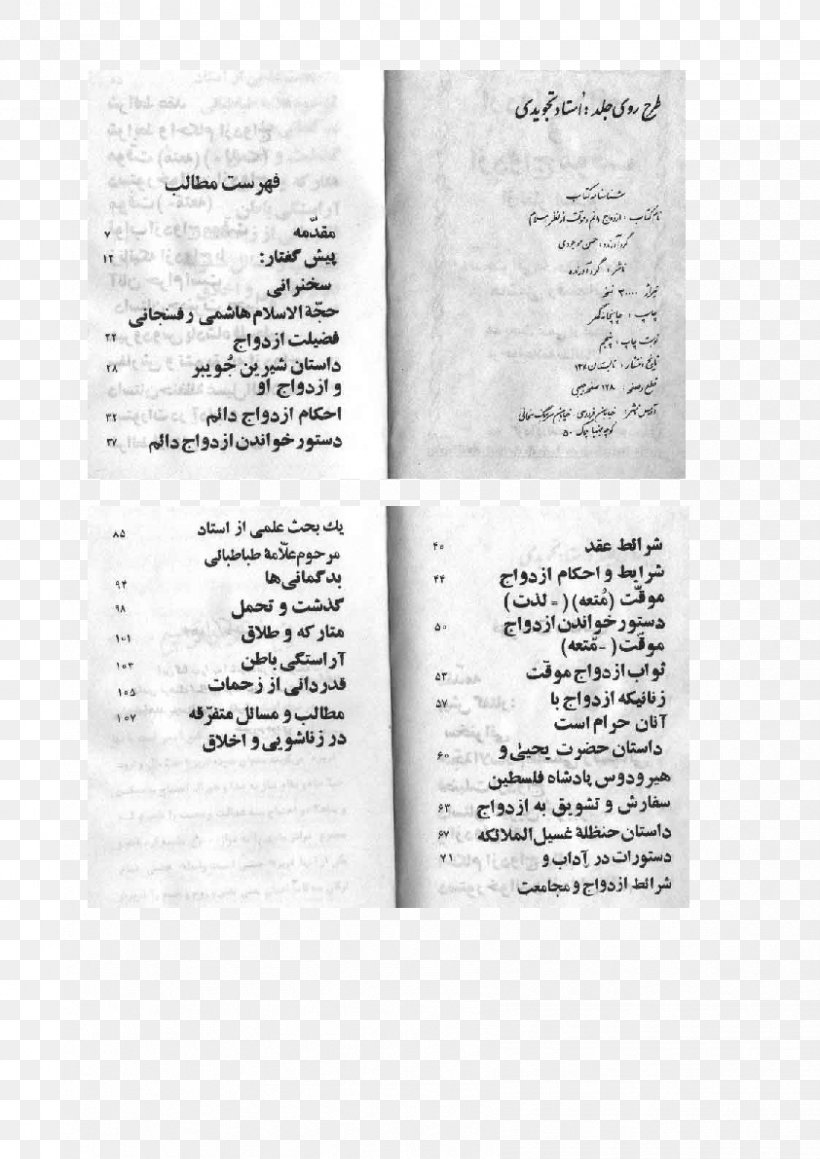 طرح روی جلد : اُستاد تجویدی
شناسنامه کتاب
نام کتاب : ازدواج دائم و موقت از نظر اسلام
گردآورنده : حسن موجودی
ناشر : گردآورنده
تیراژ ۳۰۰۰۰ نسخه
چاپ : چاپخانه گهر
نوبت چاپ : پنجم
تاریخ انتشار : تابستان ۱۳۷۰
قطع و صفحه : ۱۲۸ صفحه جیبی
آدرس ناشر: خیابان فردوسی خیابان
کوچه پلاک ۵۰
فهرست مطالب
مقدّمه ۷
پیش گفتار: ۱۲
سخنرانی
حجّة الاسلام هاشمی رفسنجانی
فضیلت ازدواج ۲۲
داستان شیرین جُویبر ۲۸
و ازدواج او
احکام ازدواج دائم ۳۲
دستور خواندن ازدواج دائم ۳۷
شرائط عقد ۴۰
شرایط و احکام ازدواج ۴۴
موقّت (مُتعه) (= لذت)
دستور خواندن ازدواج ۵۰
موقت (-مّتعه)
ثواب ازدواج موقت ۵۳
زنانیکه ازدواج با ۵۷
آنان حرام است
داستان حضرت یحیی و ۶۰
هیرودوس پادشاه فلسطین
سفارش و تشویق به ازدواج ۶۳
داستان حنظلهٔ غسیل الملائکه ۶۷
دستورات در آداب و ۷۱
شرائط ازدواج و مجامعت
یك بحث علمی از استاد ۸۵
مرحوم علّامهٔ طباطبائی
بدگمانی‌ها ۹۴
گذشت و تحمل ۹۸
متارکه و طلاق ۱۰۱
آراستگی باطن ۱۰۳
قدردانی از زحمات ۱۰۵
مطالب و مسائل متفرّقه ۱۰۷
در زناشویی و اخلاق